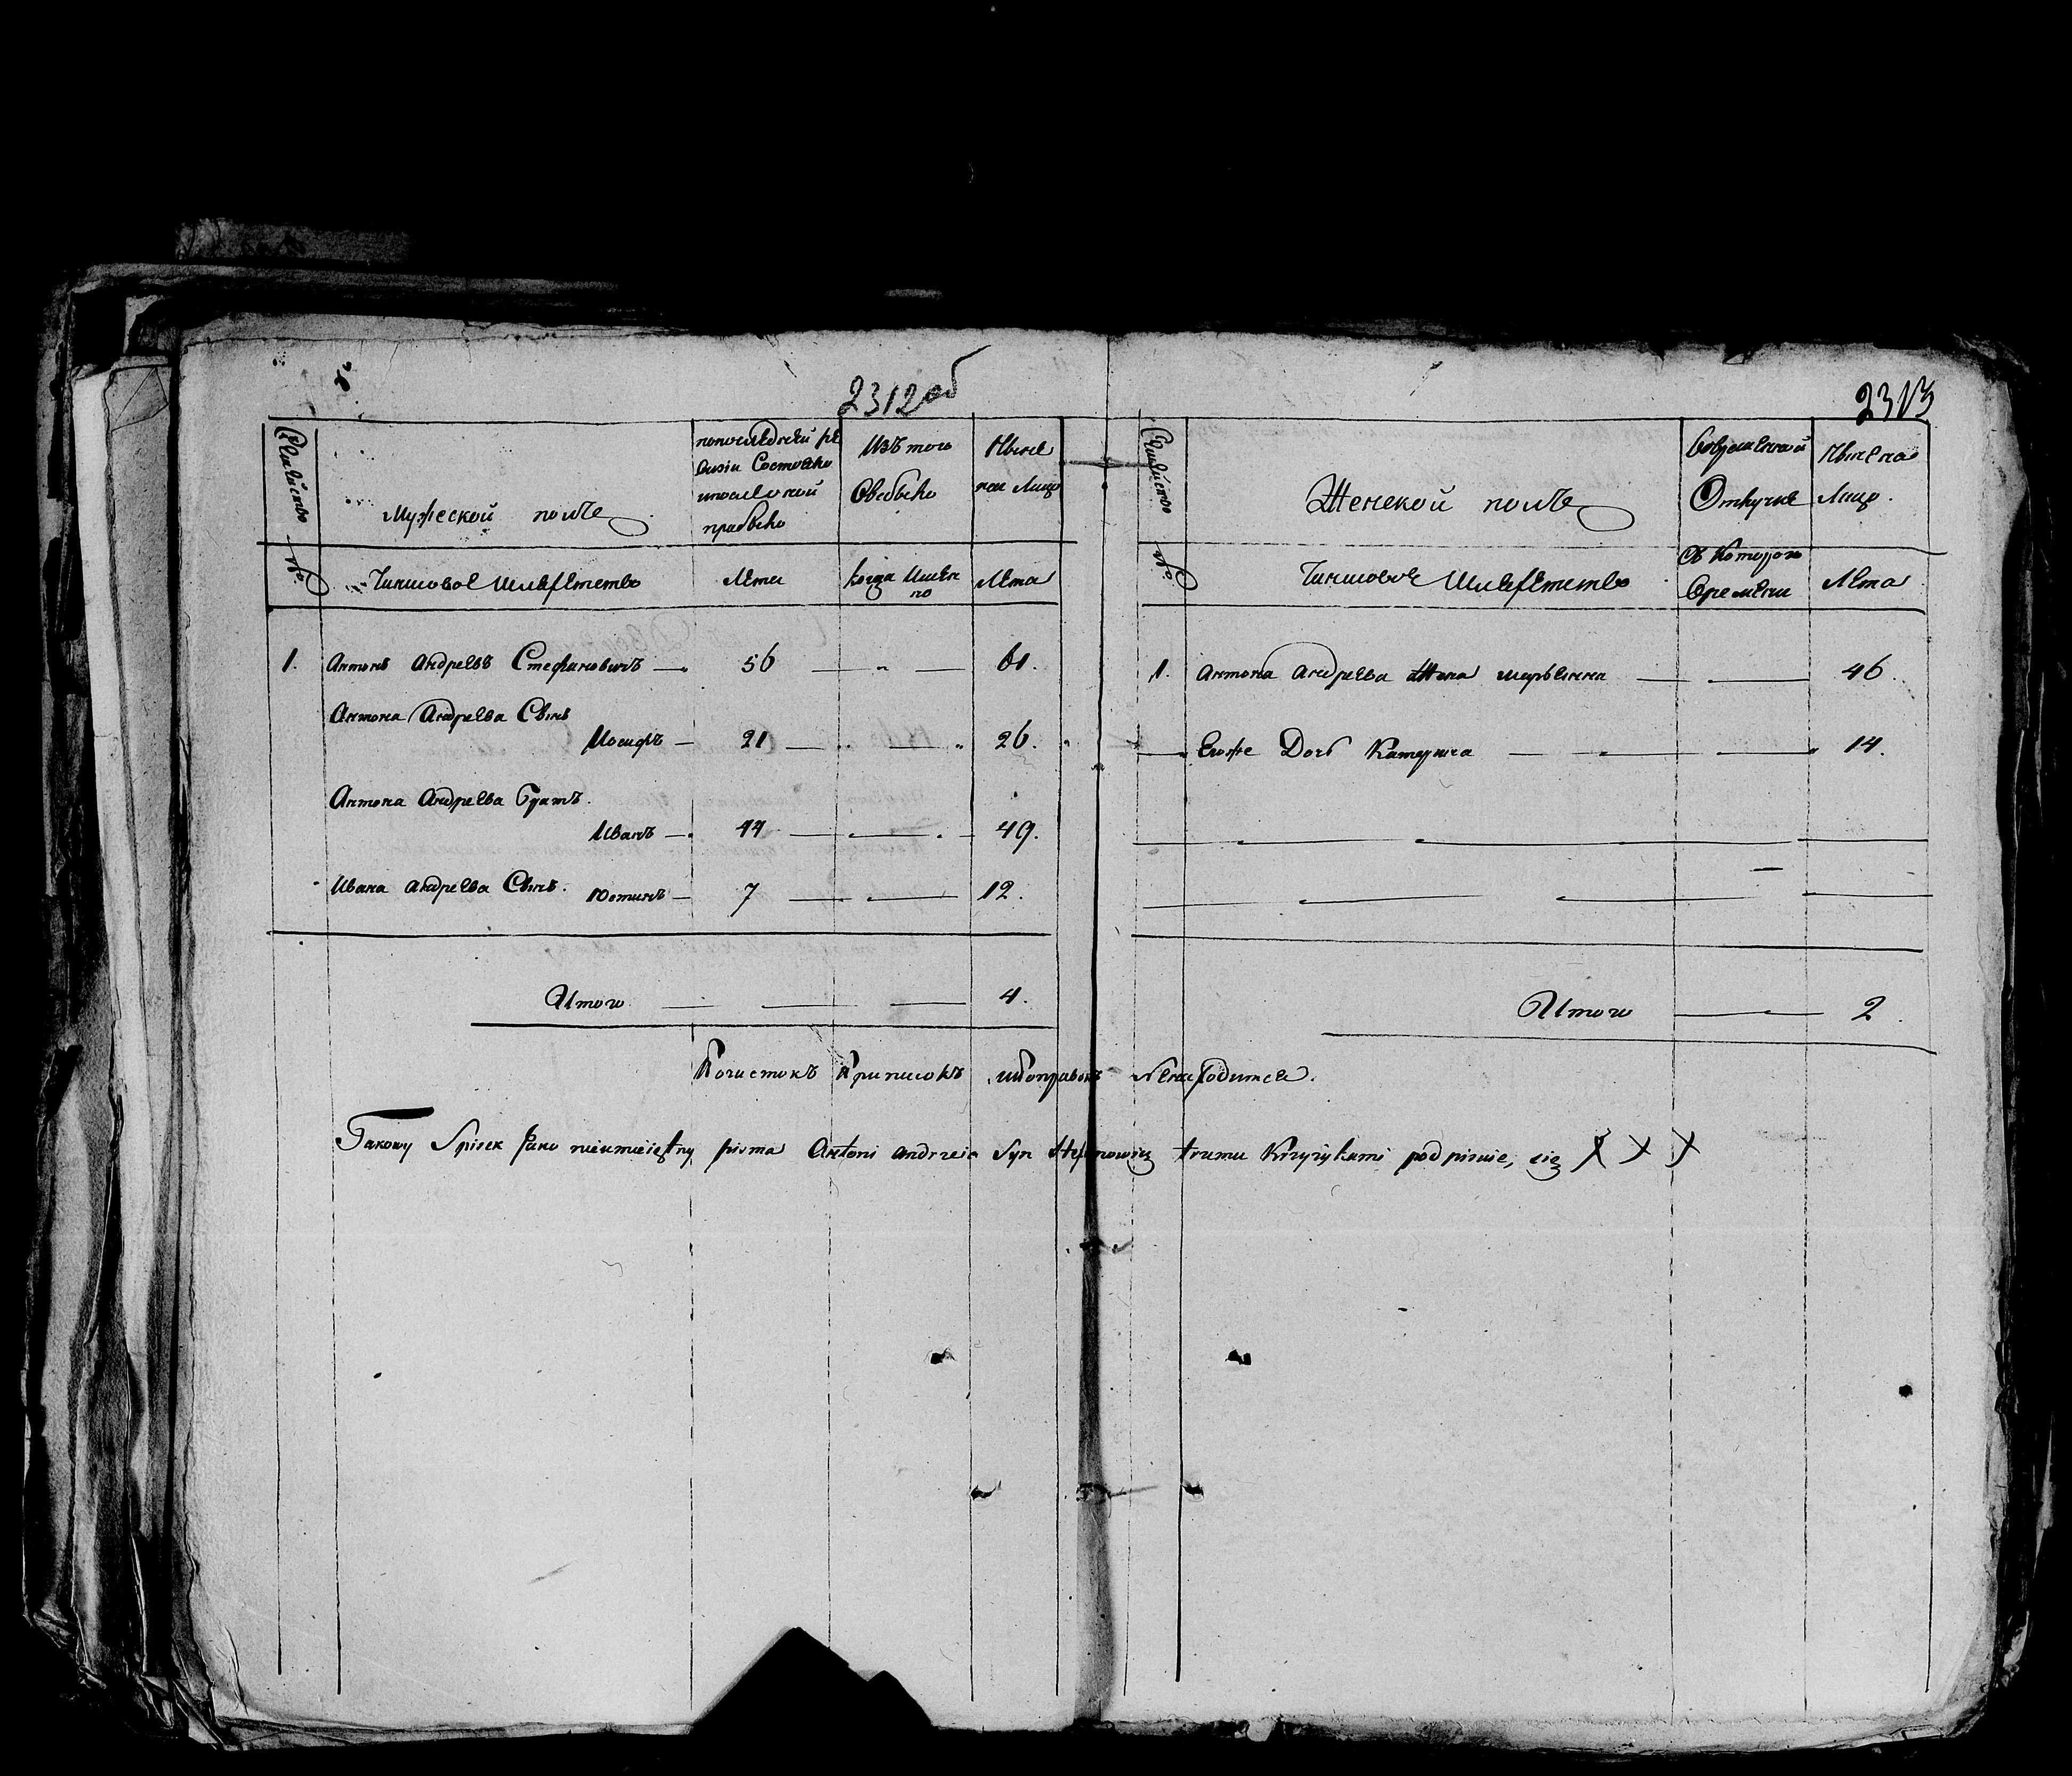 2312об
2313
Семейство
Мужеской полъ
попоследней ре
визіи Состояло
ипослѣ оной
прибыло
Изъ того
Выбыло
Ныне
на Лицо
№
Чиншовое шляхетство
Лета
когда Имен
но
Лета
1. Антонъ Андреевъ Стефановичъ 56 61.
Антона Андреева Сынъ
Иосифъ 21 26.
Антона Андреева Братъ.
Иванъ 44 49.
Ивана Андреева Сынъ. Юстинъ 7 12.
Итого 4.
Семейство
Женской полъ
Вовременной
Отлучке
Ныне на
Лицо.
№
Чиншовое Шляхетство
Съ Которого
Времени
Лета
1. Антона Андреева Жена Марьянна 46.
Егоже Дочь Катерина 14.
Итого 2.
Почистокъ Приписокъ иПоправокъ Ненаходится.
Takowy Spisek Jako nieumieiętny pisma Antoni Andrzeia Syn Stefanowicz trzema Krzyżykami podpisuie się X X X